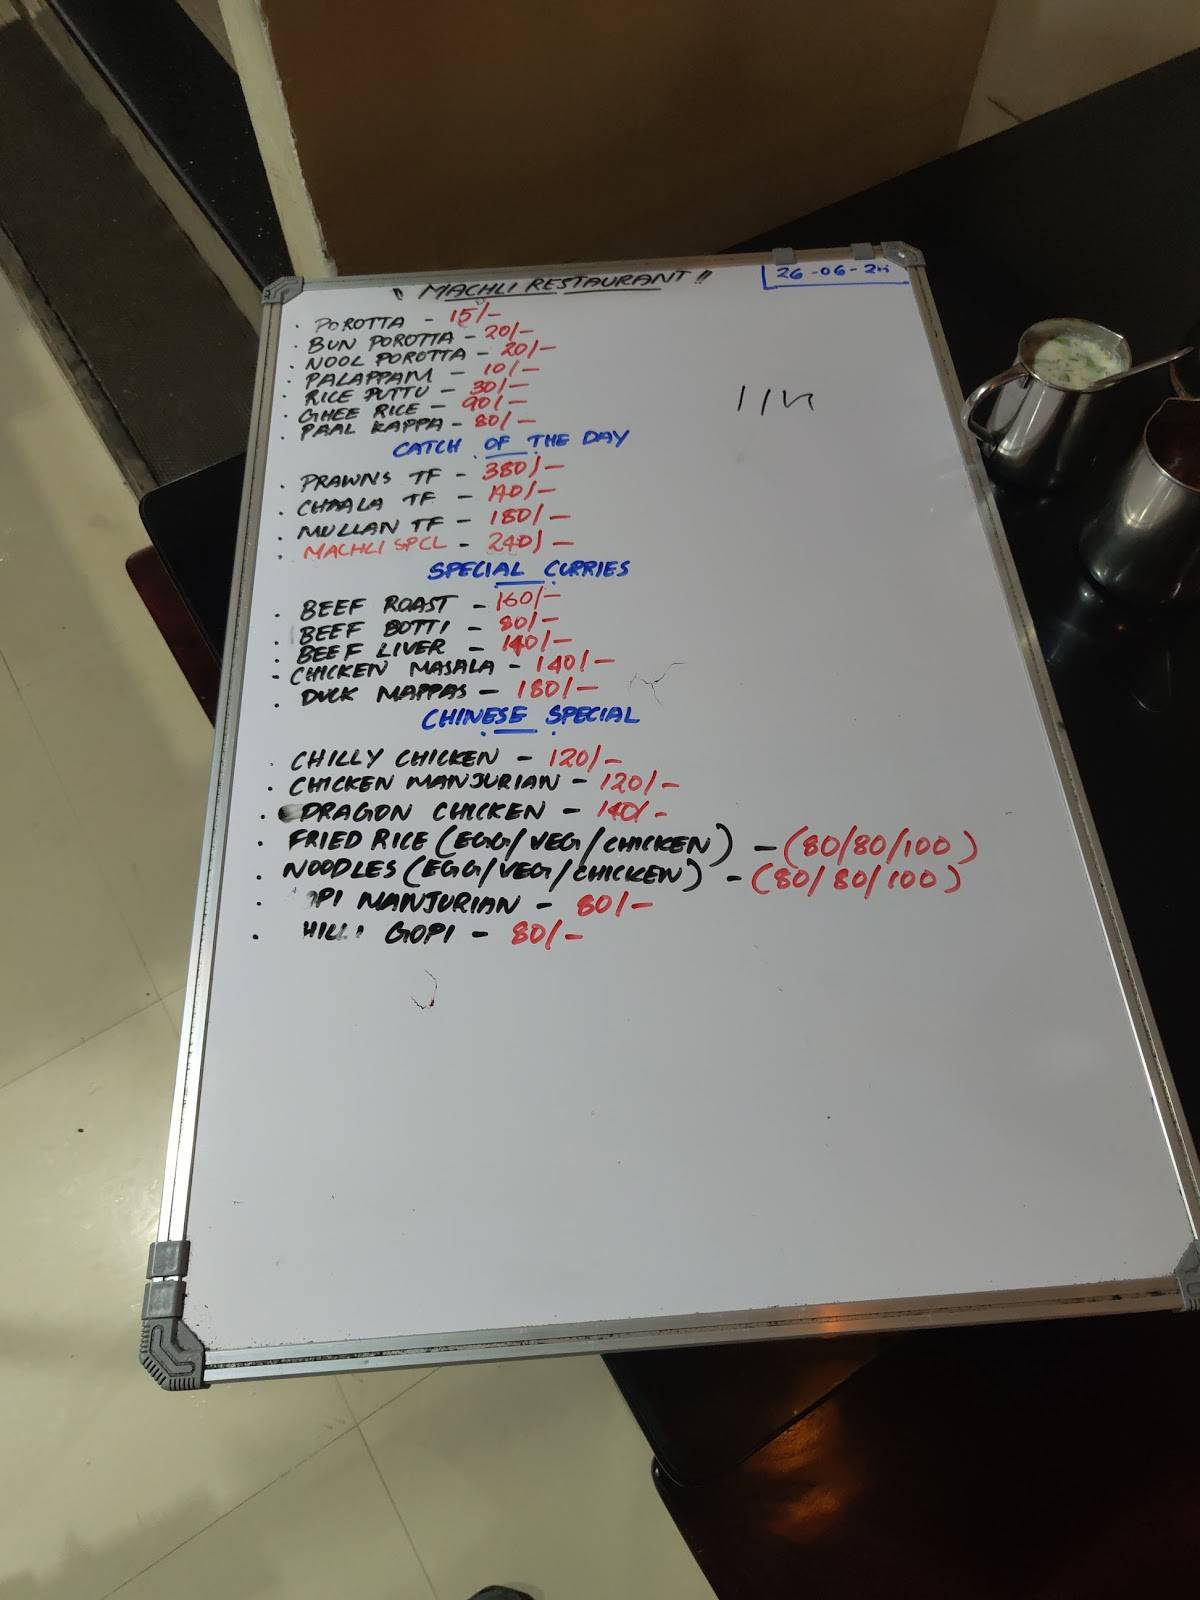 " MACHLI RESTAURANT "
26-06-24
. POROTTA - 15/-
. BUN POROTTA - 20/-
. NOOL POROTTA - 20/-
. PALAPPAM - 10/-
. RICE PUTTU - 30/-
. GHEE RICE - 90/-
. PAAL KAPPA - 80/-
CATCH OF THE DAY
. PRAWNS TF - 380/-
. CHAALA TF -
. MULLAN TF - 180/-
. MACHLI SPCL - 240/-
SPECIAL CURRIES
. BEEF ROAST - 160/-
. BEEF BOTTI - 80/-
. BEEF LIVER - 140/-
- CHICKEN MASALA - 140/-
. DUCK MAPPAS - 180/-
CHINESE SPECIAL
. CHILLY CHICKEN - 120/-
. CHICKEN MANJURIAN - 120/-
. DRAGON CHICKEN - 140/-
. FRIED RICE (EGG/VEG/CHICKEN) - (80/80/100)
. NOODLES (EGG/VEG/CHICKEN) - (80/80/100)
. OPI MANJURIAN - 80/-
. HILLI GOPI - 80/-